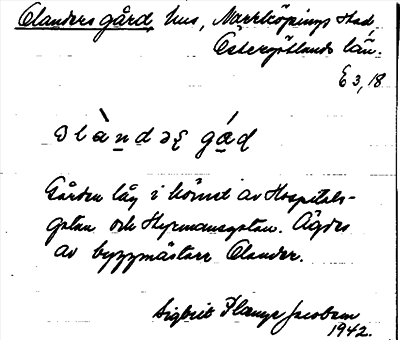 Olanders gård, hus, Norrköpings stad
Östergötlands län.
E 3, 18
gård
Gården låg i hörnet av Hospitals-
gatan och Hyrmansgatan. Ägdes
av byggmästare Olander.
Sigbrit Plænge Jacobson
1942.